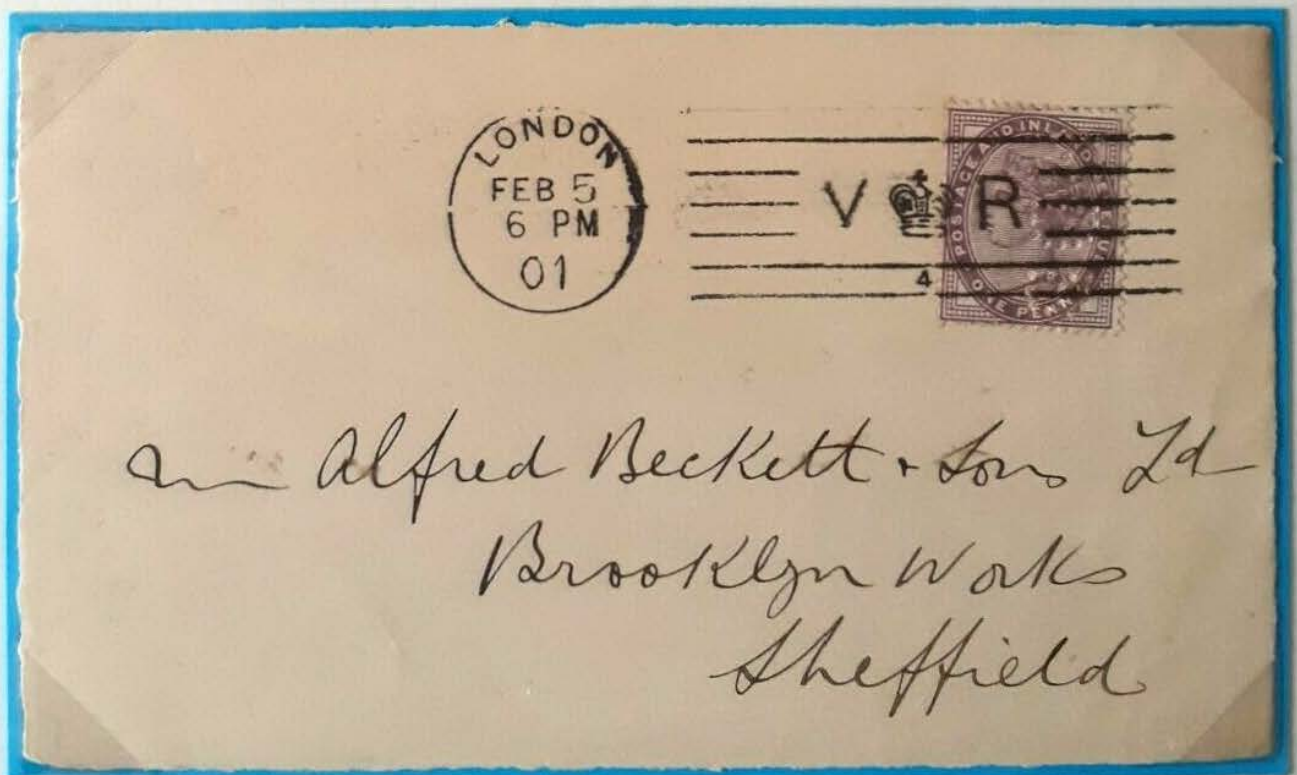 LONDON
FEB 5
6 PM
01
V R
4
POSTAGE AND INLAND REVENUE
ONE PENNY
Alfred Beckett + Sons Ld
Brooklyn Works
Sheffield